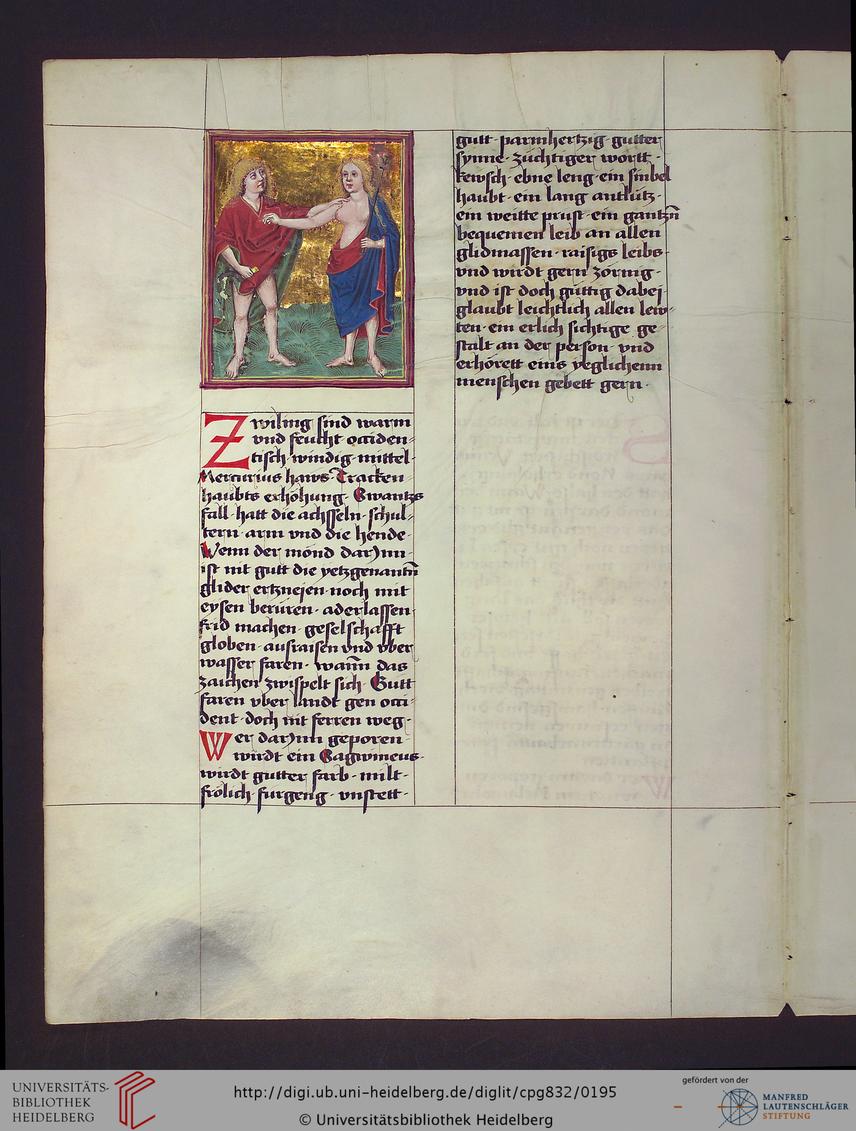 Zwiling sind warm
vnd feucht occiden-
tisch · windig · mittel
Mercurius haws · Tracken-
haubts erhöhung · Swantzs
fall · hatt die achsseln · schul-
tern · arm vnd die hende ·
Wenn der mönd darjnn
ist nit gutt die yetzgenantñ
glider ertzneien · noch mit
eysen berüren · aderlassen
frid machen · geselschafft
globen · ausraisen vnd vber
wasser faren · wañn das
zaichen zwispelt sich · Gutt
faren vber landt gen occi-
dent · doch nit ferren weg ·
Wer darjnn geporen
wirdt ein Sagwineus ·
wirdt gutter farb · milt ·
frölich · fürgeng · vnstett ·
gutt · parmhertzig · gutter
synne · züchtiger wortt ·
kewsch · ebne leng · ein sinbel
haubt · ein lang anthütz ·
ein weitte prust · ein gantzñ
bequemen leib an allen
glidmassen · raisigs leibs
vnd wirdt gern zörnig ·
vnd ist doch güttig dabej
glaubt leichtlich allen lew-
ten · ein erlich sichtige ge-
stalt an der person · vnd
erhörett eins yeglichenn
menschen gebett gern ·
UNIVERSITÄTS-
BIBLIOTHEK
HEIDELBERG
http://digi.ub.uni-heidelberg.de/diglit/cpg832/0195
© Universitätsbibliothek Heidelberg
gefördert von der
MANFRED
LAUTENSCHLÄGER
STIFTUNG